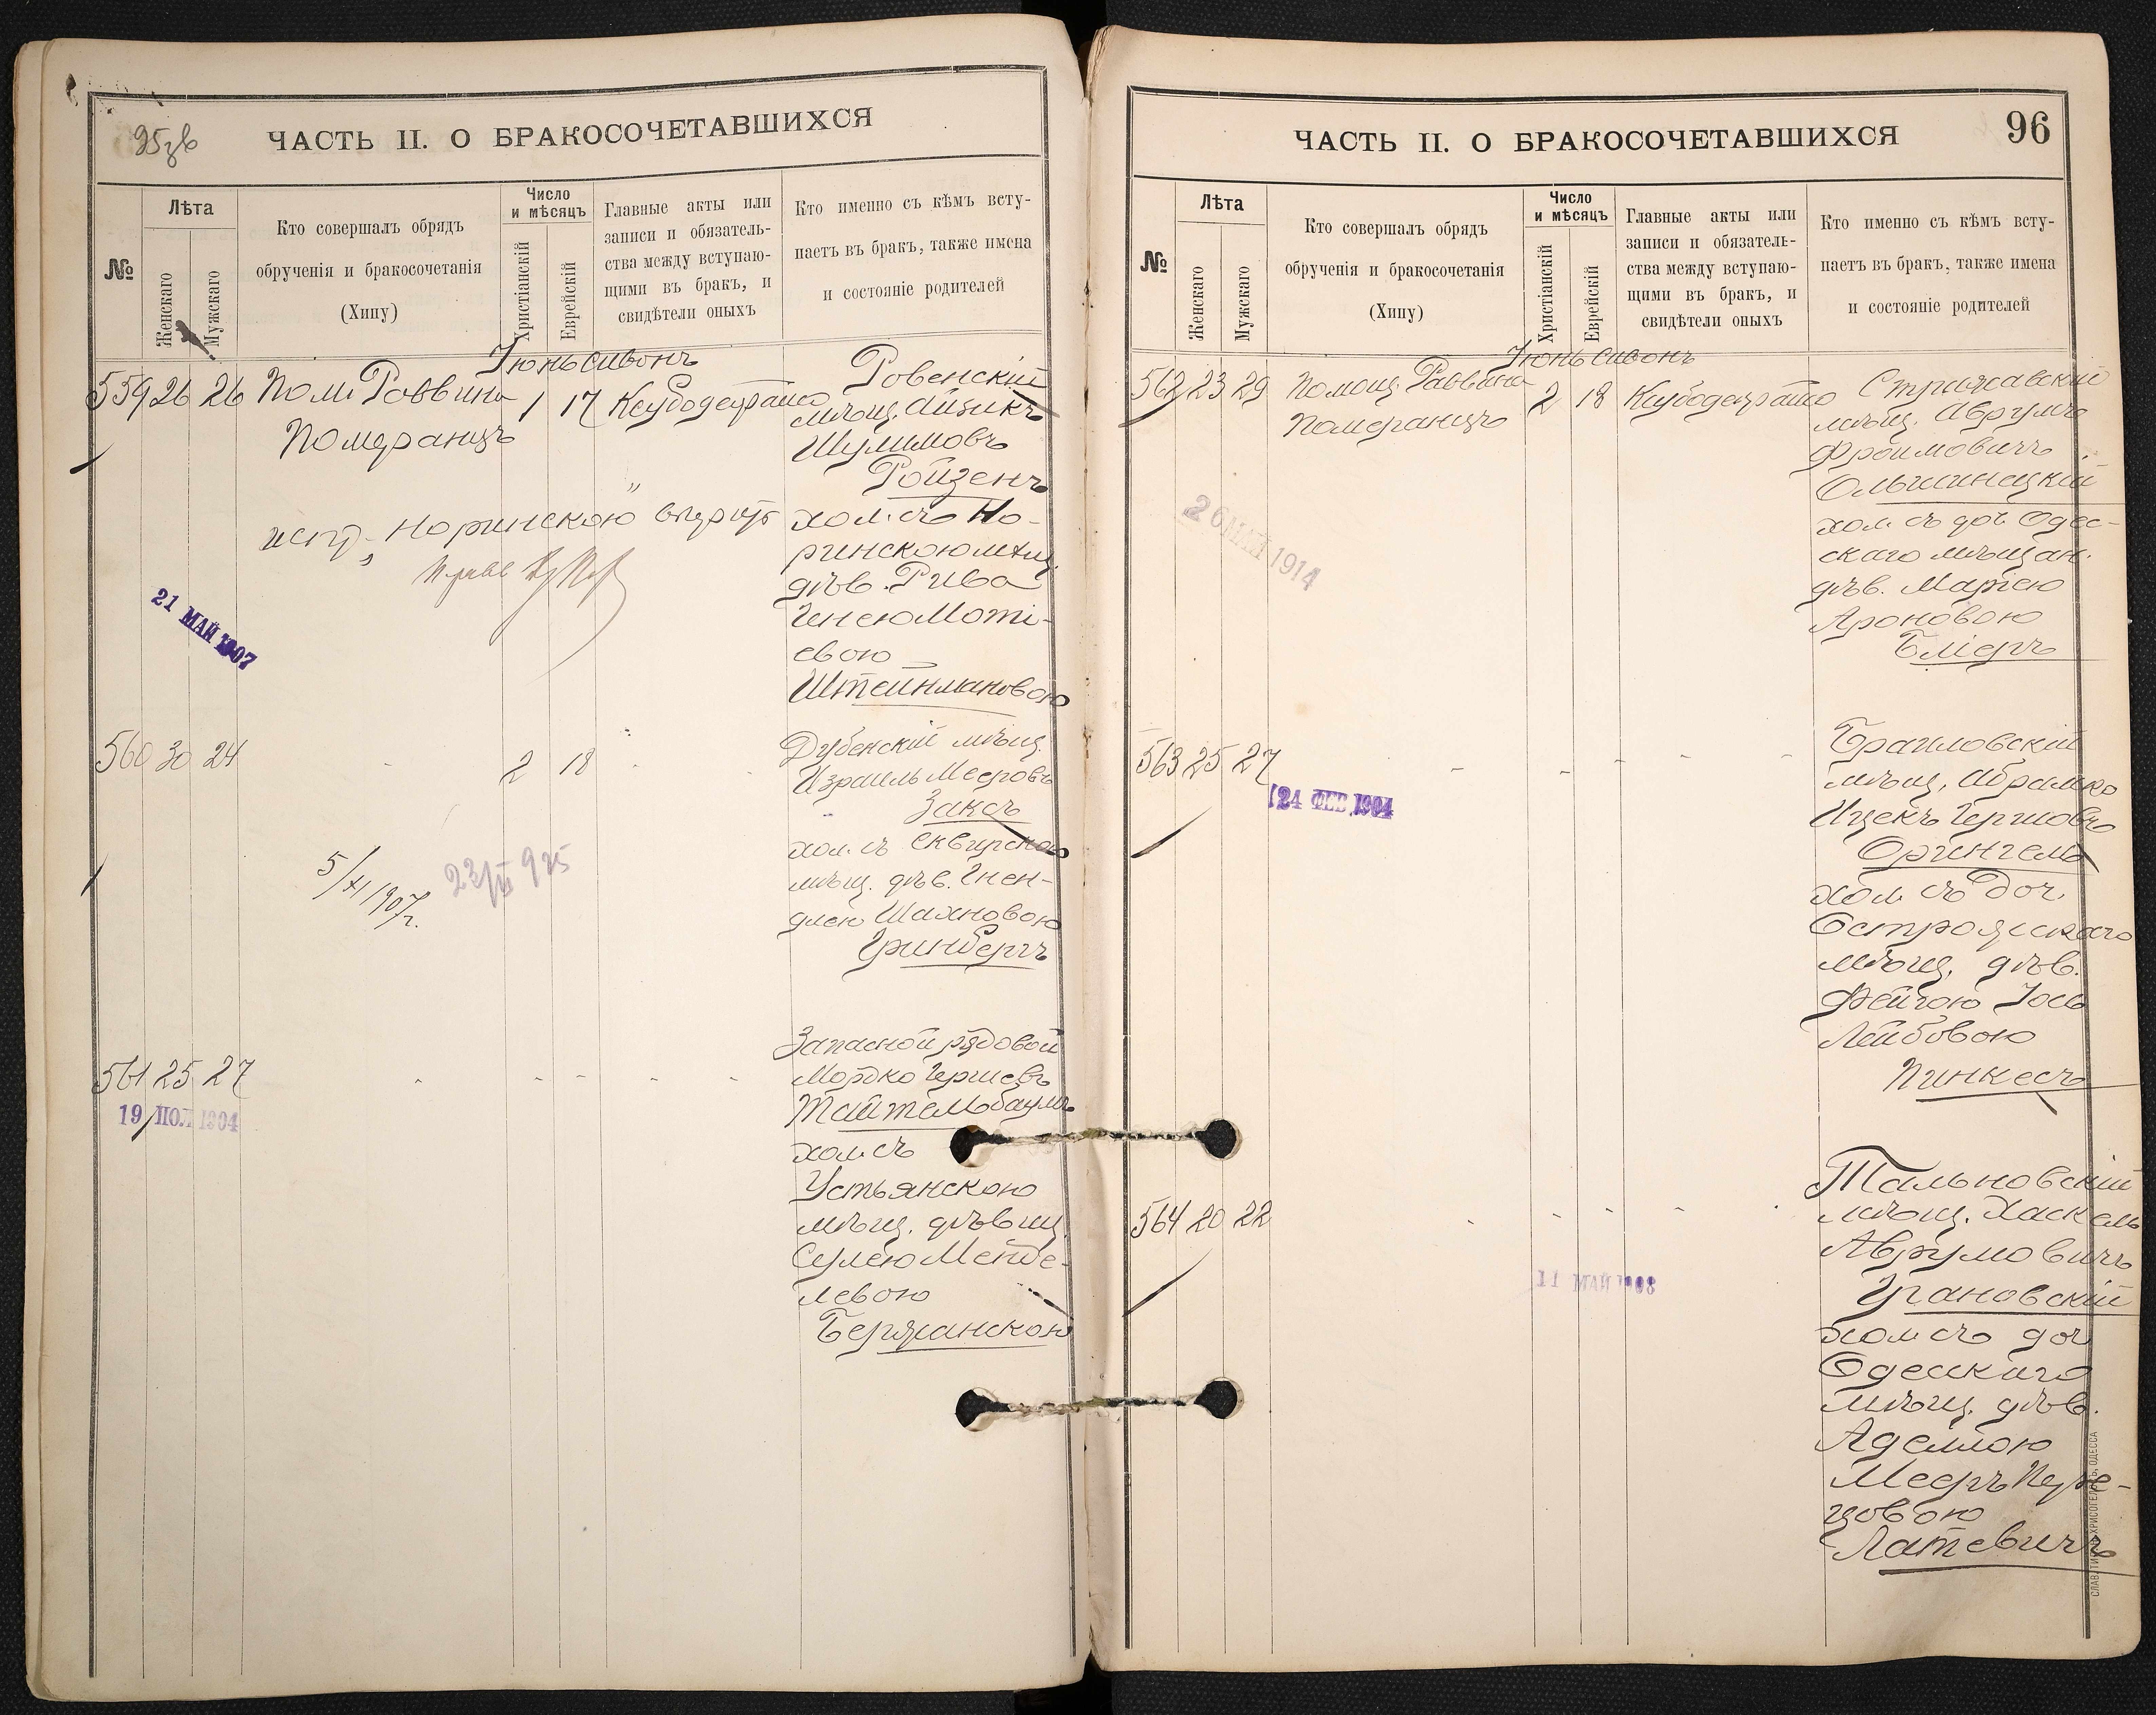 95зв
ЧАСТЬ II. О БРАКОСОЧЕТАВШИХСЯ
№
Лѣта
Женскаго
Мужскаго
Кто совершалъ обрядъ
обрученія и бракосочетанія
(Хипу)
Число
и мѣсяцъ
Христіанскій
Еврейскій
Главные акты или
записи и обязатель-
ства между вступаю-
щими въ бракъ, и
свидѣтели оныхъ
Кто именно съ кѣмъ всту-
паетъ въ бракъ, также имена
и состояніе родителей
Іюнь Сивонъ
559 26 26 Пом. Раввина 1 17
Померанцъ
Ровенскій
мѣщ. Айзикъ
Шулимовъ
Ройзенъ
хол. съ Но-
ринскою мѣщ.
дѣв. Рива
Генею Моті-
евою
Штейнмановою
испр. "Норинскою"
21 МАЙ 1907
560 30 24 - 2 18 - -
Дубенскій мѣщ.
Израиль Мееровъ
Заксъ
хол. съ Сквирскою
мѣщ. дѣв. Гнен-
длею Шахновою
Гринбергъ
5/XI 1907г.
561 25 27 - - - - -
19 ІЮЛ 1904
Запасной рядовой
Мордко Гершевъ
Тайтельбаумъ
хол. съ
Устьянскою
мѣщ. дѣвиц.
Сулею Менде-
левою
Бержанскою
96
ЧАСТЬ II. О БРАКОСОЧЕТАВШИХСЯ
№
Лѣта
Женскаго
Мужскаго
Кто совершалъ обрядъ
обрученія и бракосочетанія
(Хипу)
Число
и мѣсяцъ
Христіанскій
Еврейскій
Главные акты или
записи и обязатель-
ства между вступаю-
щими въ бракъ, и
свидѣтели оныхъ
Кто именно съ кѣмъ всту-
паетъ въ бракъ, также имена
и состояніе родителей
Іюнь Сивонъ
562 23 29 Помощ. Раввина 2 18
Померанцъ
Стрижавскій
мѣщ. Аврумъ
Фроимовичъ
Ольшанецкій
хол. съ доч. Одес-
скаго мѣщан.
дѣв. Маріею
Ароновою
Бліеръ
26 МАЙ 1914
563 25 27 - - - - -
24 ФЕВ 1904
Браиловскій
мѣщ. Абрамко
Ицекъ Гершовъ
Орингель
хол. съ доч.
Острожскаго
мѣщ. дѣв.
Фейгою Іось
Лейбовою
Пинкесъ
564 20 22 - - - - -
11 МАЙ 1908
Тальновскій
мѣщ. Хаскель
Аврумовичъ
Грановскій
хол. съ доч
Одесскаго
мѣщ. дѣв.
Аделлою
Мееръ Пере-
цовою
Латевичъ